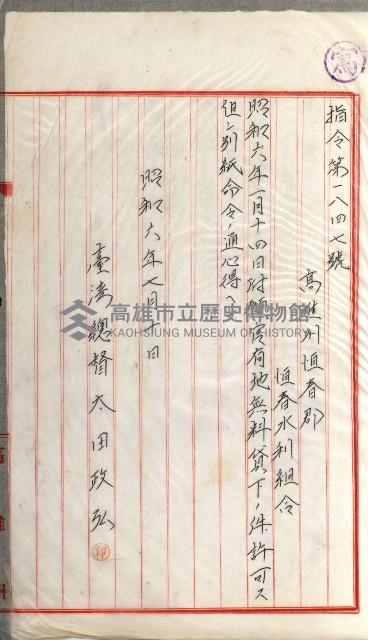 寫
指令第一八四七號
高雄州恒春郡
恒春水利組合
昭和六年一月十四日付願官有地無料貸下ノ件許可ス
但シ別紙命令ノ通心得ヘシ
昭和六年七月十日
臺灣總督太田政弘
印
高雄市立歷史博物館
KAOHSIUNG MUSEUM OF HISTORY